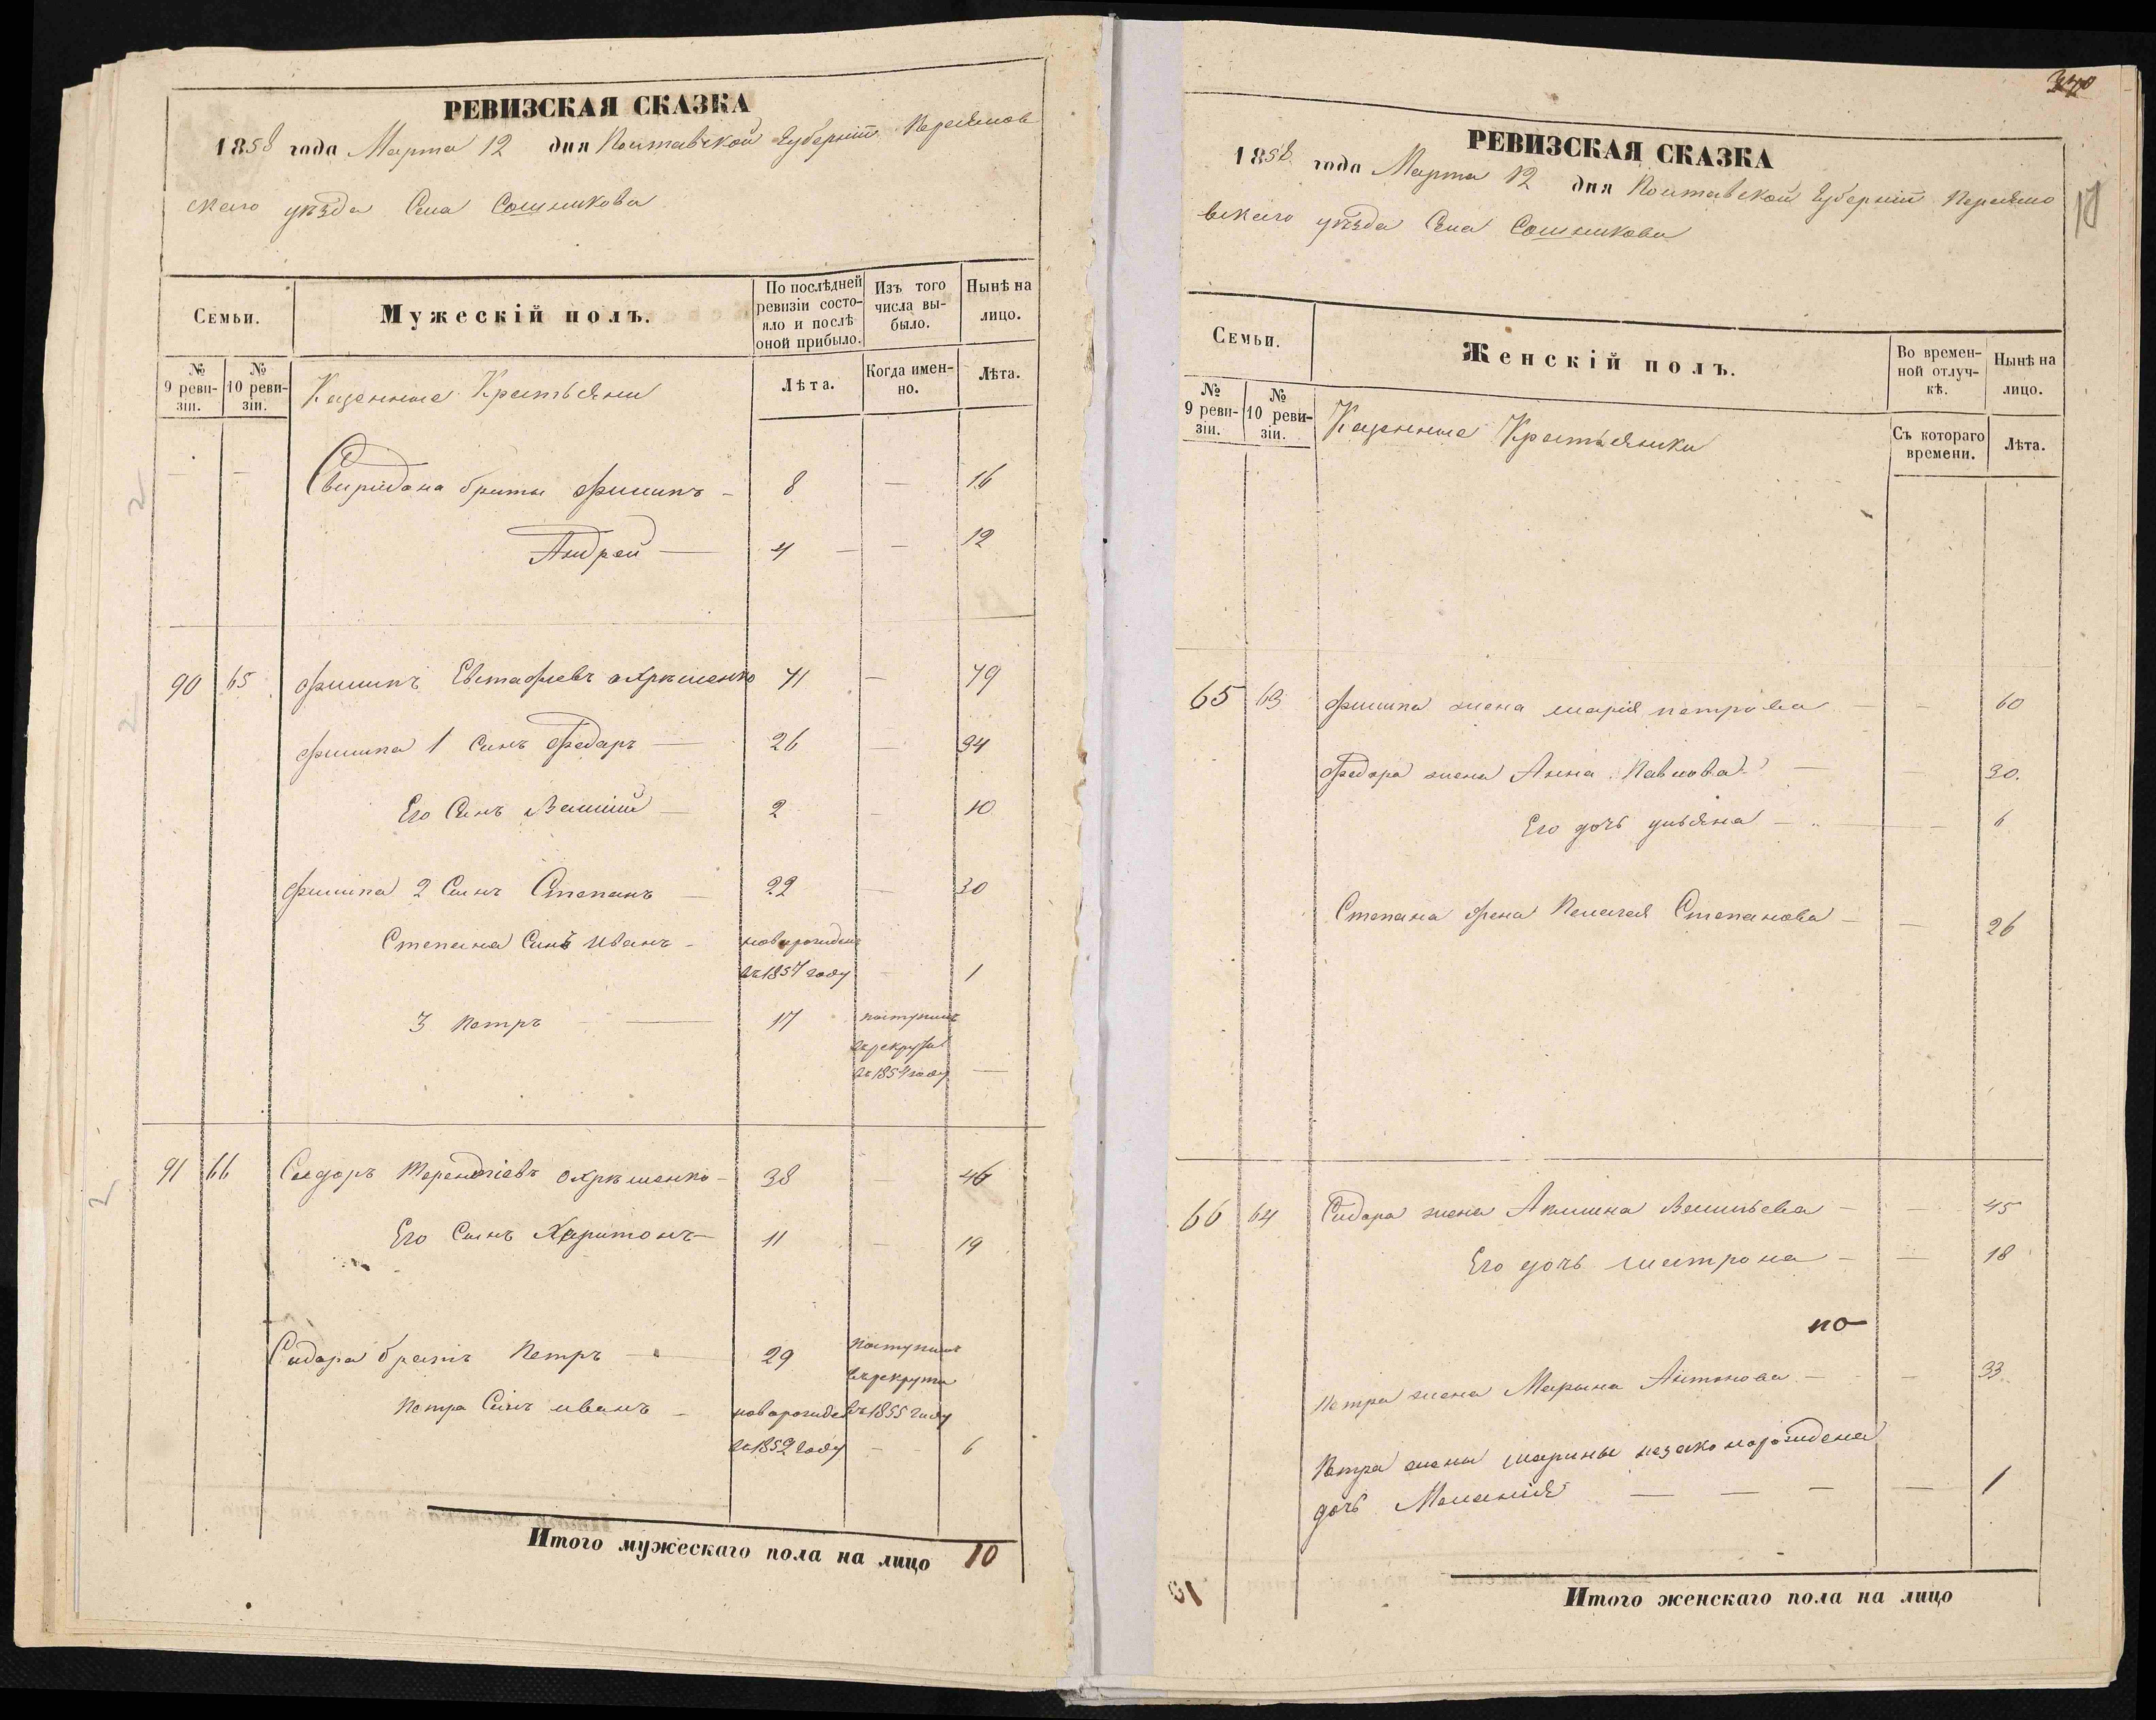 РЕВИЗСКАЯ СКАЗКА
1858 года Марта 12 дня Полтавской Губерніи Переяслов
скаго уезда Села Сошникова
Семьи.
Мужескій полъ.
По послѣдней ревизіи состо-
яло и послѣ
оной прибыло.
Изъ того
числа вы-
было.
Нынѣ на
лицо.
№
9 реви-
зіи.
№
10 реви-
зіи.
Казенные Крестьяни
Лѣта.
Когда имен-
но.
Лѣта.
— — Свиридона браты Филипъ — 8 — 16
Андрей — 4 — — 12
90 65 Филипъ Евстафиевъ Охрѣменко 71 — 79
Филипа 1 Синъ Федаръ — 26 — 34
Его Синъ Василій — 2 — 10
Филипа 2 Синъ Степанъ — 22 — 30
Степана Синъ Иванъ — новорожден
въ 1857 году — 1
3 Петръ — 17 поступилъ
въ рекруты
въ 1854 году —
91 66 Сидоръ Терентіевъ Охрѣменко — 38 — 46
Его Синъ Харитонъ — 11 — 19
Сидора братъ Петръ — 29 поступилъ
в рекруты
Петра Синъ Иванъ — новорожден въ 1855 году
въ 1852 году — — 6
Итого мужескаго пола на лицо 10
РЕВИЗСКАЯ СКАЗКА
1858 года Марта 12 дня Полтавской Губерніи Переясло
вскаго уѣзда Села Сошникова
Семьи.
Женскій полъ.
Во времен-
ной отлуч-
кѣ.
Нынѣ на
лицо.
№
9 реви-
зіи.
№
10 реви-
зіи.
Казенные Крестьянки
Съ котораго
времени.
Лѣта.
65 63 Филипа жена Марія Петрова — — 60
Федора жена Анна Павлова — — 30.
Его дочь Ульяна — — — 6
Степана жена Пелагея Степанова — — 26
66 64 Сидора жена Акилина Васильева — — 45
Его дочь Матрона — — 18
по
Петра жена Марына Антонова — — 33
Петра жены Марины незаконорождена
дочь Меланія — — — — 1
Итого женскаго пола на лицо